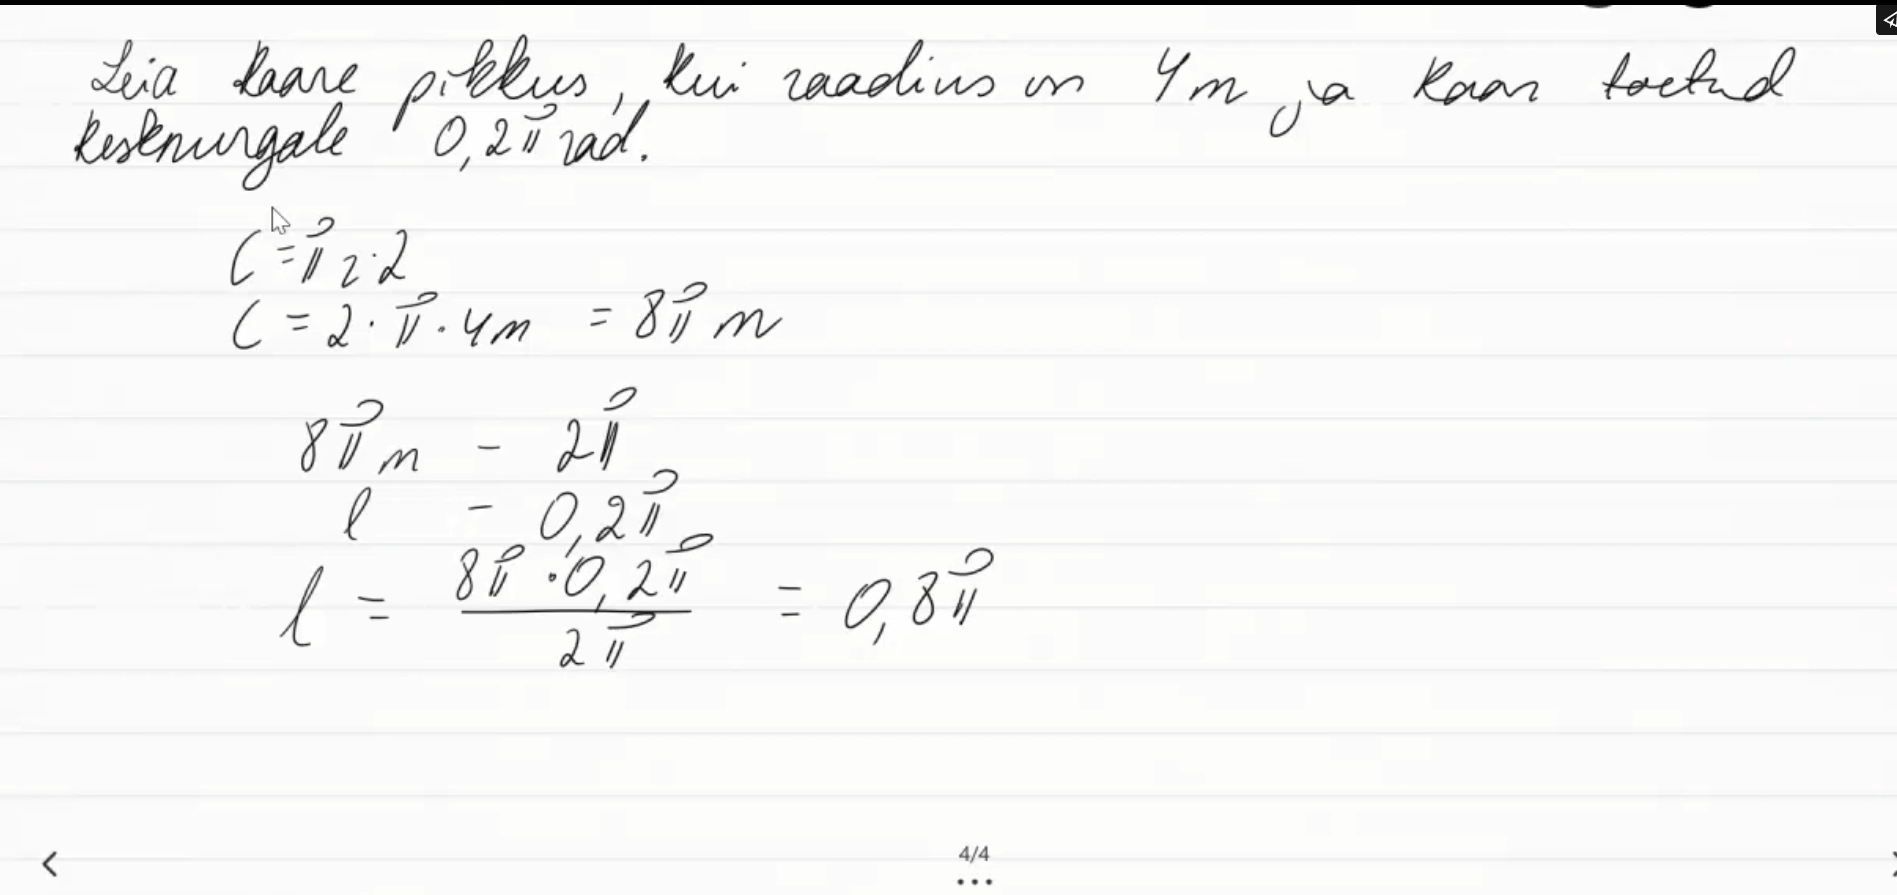 Leia kaare pikkus, kui raadius on 4m ja kaar toetud
kesknurgale 0,2π rad.
C = π r · 2
C = 2 · π · 4m = 8π m
8π m - 2π
l - 0,2π
l = (8π · 0,2π) / 2π = 0,8π
4/4